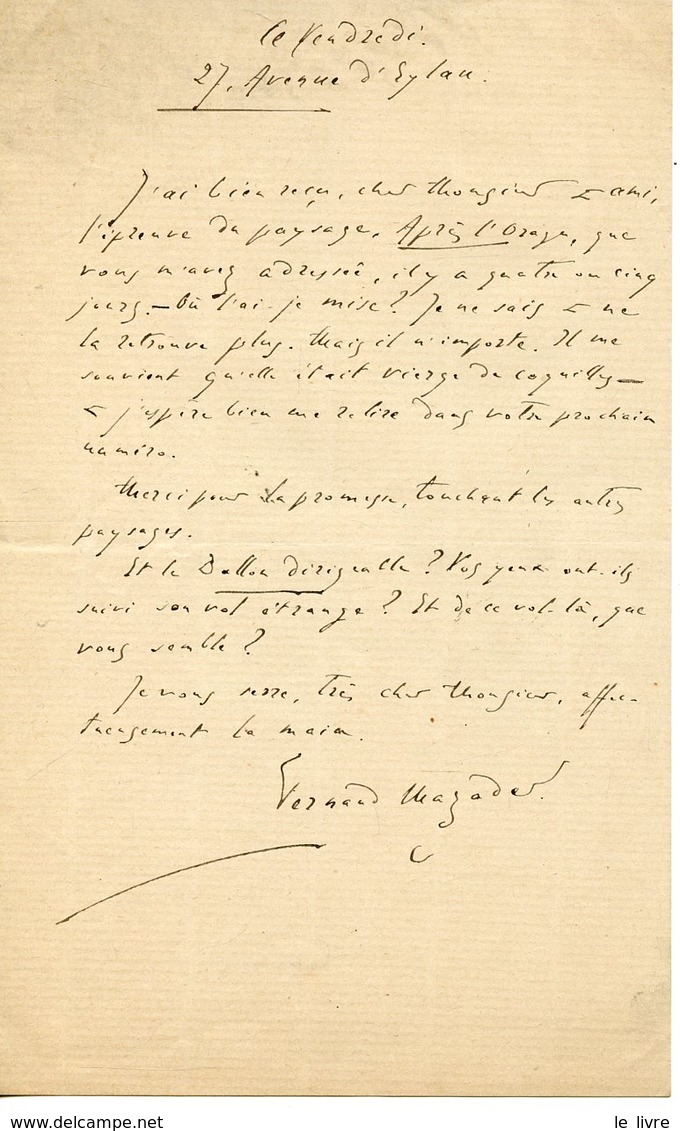 Ce Vendredi.
27, Avenue d'Eylau.
J'ai bien reçu, cher Monsieur & ami,
l'épreuve du paysage, Après l'Orage, que
vous m'avez adressée, il y a quatre ou cinq
jours. — Où l'ai-je mise? Je ne sais & ne
la retrouve plus. Mais il n'importe. Il me
souvient qu'elle était vierge de coquilles —
& j'espère bien me relire dans votre prochain
numéro.
Merci pour la promesse, touchant les autres
paysages.
Et le Ballon dirigeable? Vos yeux ont-ils
suivi son vol étrange? Et de ce vol-là, que
vous semble?
Je vous serre, très cher Monsieur, affec-
tueusement la main.
Fernand Mazade.
www.delcampe.net
le livre